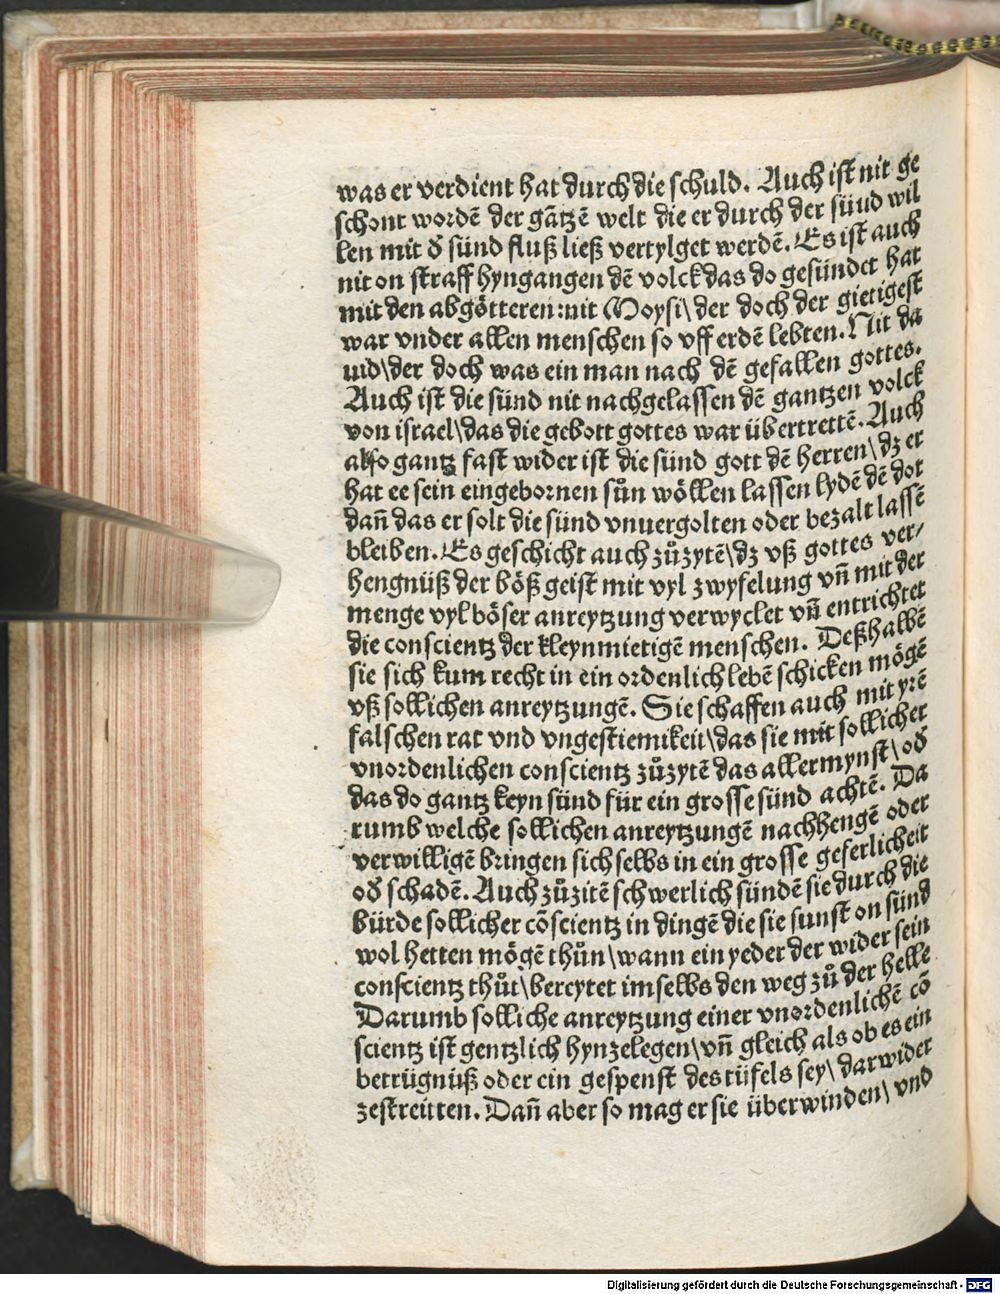 was er verdient hat durch die schuld. Auch ist nit ge
schont wordē der gātzē welt die er durch der sünd wil
len mit d̕ sünd fluß ließ vertylget werdē. Es ist auch
nit on straff hyngangen dē volck das do gesündet hat
mit den abgötteren:nit Moysi\ der doch der gietigest
war vnder allen menschen so vff erdē lebten. Nit da
uid\ der doch was ein man nach dē gefallen gottes.
Auch ist die sünd nit nachgelassen dē gantzen volck
von israel\ das die gebott gottes war übertrettē. Auch
also gantz fast wider ist die sünd gott dē herren\ dz er
hat ee sein eingebornen sůn wöllen lassen lydē dē dot
dañ das er solt die sünd vnuergolten oder bezalt lassē
bleiben. Es geschicht auch zůzytē\ dz vß gottes ver⸗
hengnüß der böß geist mit vyl zwyfelung vñ mit der
menge vyl böser anreytzung verwyclet vñ entrichtet
die conscientz der kleynmietigē menschen. Deßhalbē
sie sich kum recht in ein ordenlich lebē schicken mögē
vß sollichen anreytzungē. Sie schaffen auch mit yrē
falschen rat vnd vngestiemikeit\ das sie mit sollicher
vnordenlichen conscientz zůzytē das allermynst\ od̕
das do gantz keyn sünd für ein grosse sünd achtē. Da
rumb welche sollichen anreytzungē nachhengē oder
verwilligē bringen sich selbs in ein grosse geferlicheit
od̕ schadē. Auch zůzitē schwerlich sündē sie durch die
bürde sollicher cōscientz in dingē die sie sunst on sünd
wol hetten mögē thůn\ wann ein yeder der wider sein
conscientz thůt\ bereytet im selbs den weg zů der helle
Darumb solliche anreytzung einer vnordenlichē cō
scientz ist gentzlich hynzelegen\ vñ gleich als ob es ein
betrügnüß oder ein gespenst des tüfels sey\ darwider
zestreitten. Dañ aber so mag er sie überwinden\ vnd
Digitalisierung gefördert durch die Deutsche Forschungsgemeinschaft - DFG